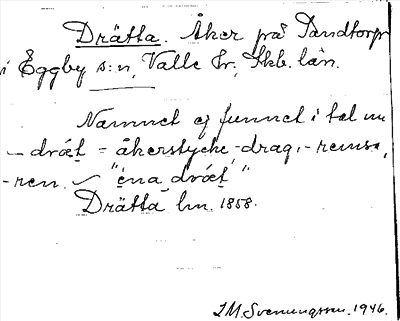 Drätta. Åker på Sandtorp
i Eggby s:n, Valle hr, Skb. län.
Namnet ej funnet i tal nu
– drät = åkerstycke -drag, -remsa,
-ren. "ena drät"
Drätta lm. 1858.
S M. Svenungsson. 1946.